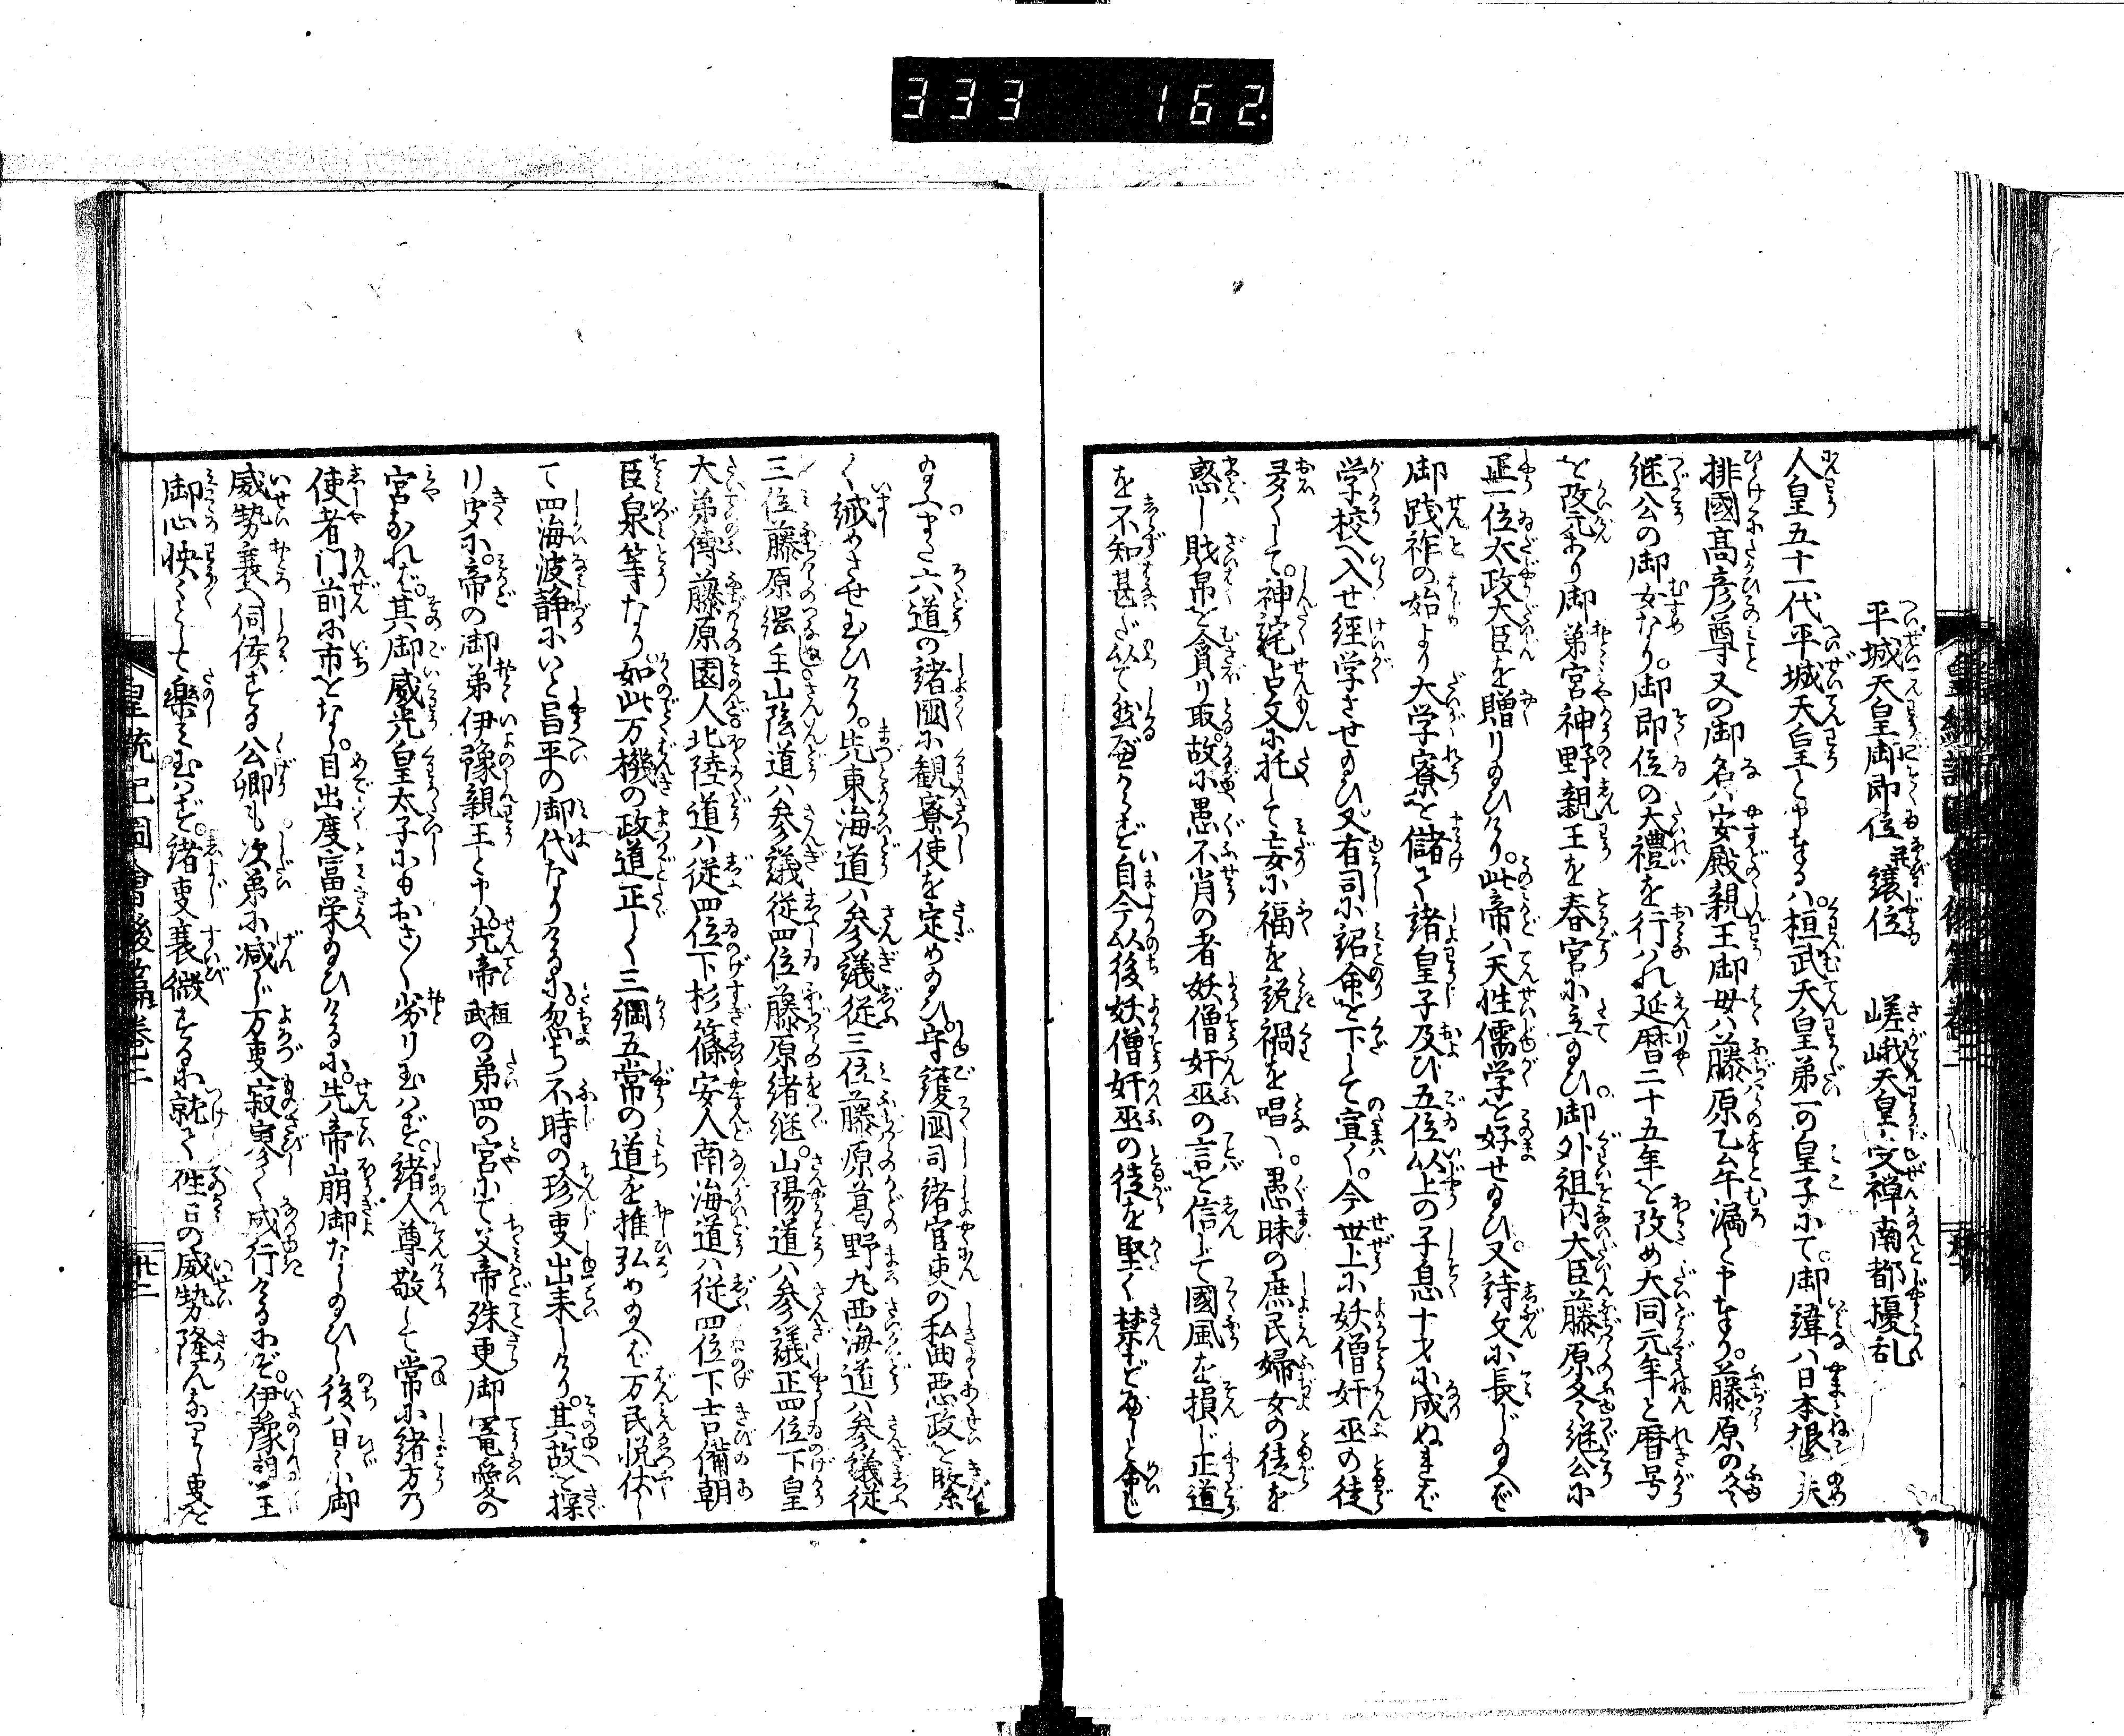 333 162.
平城天皇御即位 并 讓位 嵯峨天皇受禅南都擾乱
人皇五十一代平城天皇と申奉るハ。桓武天皇第一の皇子にて。御諱ハ日本根子天
排國髙彦尊又の御名ハ安殿親王御母ハ藤原乙牟漏と申奉り。藤原の
継公の御女なり。御即位の大禮を行ハれ延暦二十五年を改め大同元年と暦号
を改元あり御弟宮神野親王を春宮に立給ひ。御外祖内大臣藤原良継公に
正一位太政大臣を贈り給ひけり。此帝ハ天性儒学を好せ給ひ。又詩文に長じ給へば
御践祚の始より大学寮を儲て諸皇子及び五位以上の子息十才に成ぬれば
学校へ入せ経学させ給ひ又有司に詔命を下して宣く。今世上に妖僧奸巫の徒
多くして。神詫占文に托して妄に福を説禍を唱へ。愚昧の庶民婦女の徒を
惑し財帛を貪り取。故に愚不肖の者妖僧奸巫の言を信じて國風を損じ正道
を不知甚だ以て然るべからず自今以後妖僧奸巫の徒を堅く禁ずべしと命じ
給ふ。また六道の諸國に観察使を定め給ひ。守護國司諸官吏の私曲悪政を緊
く誡めさせ玉ひけり。先東海道ハ参議従三位藤原葛野丸西海道ハ参議従
三位藤原縄主山陰道ハ参議従四位藤原緒継。山陽道ハ参議正四位下皇
大弟傅藤原園人北陸道ハ従四位下杉篠安人南海道ハ従四位下吉備朝
臣泉等なり。如此万機の政道正しく三綱五常の道を推弘め給へば万民悦伏し
て四海波静にいと昌平の御代なりけるに。忽ち不時の珍事出来しけり。其故を探
り聞に。帝の御弟伊豫親王と申ハ。先帝桓武の弟四の宮にて父帝殊更御寵愛の
宮なれば。其御威光皇太子にもおさ〳〵劣り玉ハず。諸人尊敬して常に諸方の
使者門前に市をなし。目出度富栄給ひけるに。先帝崩御なし給ひし後ハ日々に御
威勢衰へ伺候する公卿も次第に减じ万事寂寥く成行けるにぞ。伊豫親王
御心怏々として樂み玉ハず。諸事衰微するに就て往日の威勢隆んなりし事を
皇統記圖會後篇巻二
廿二